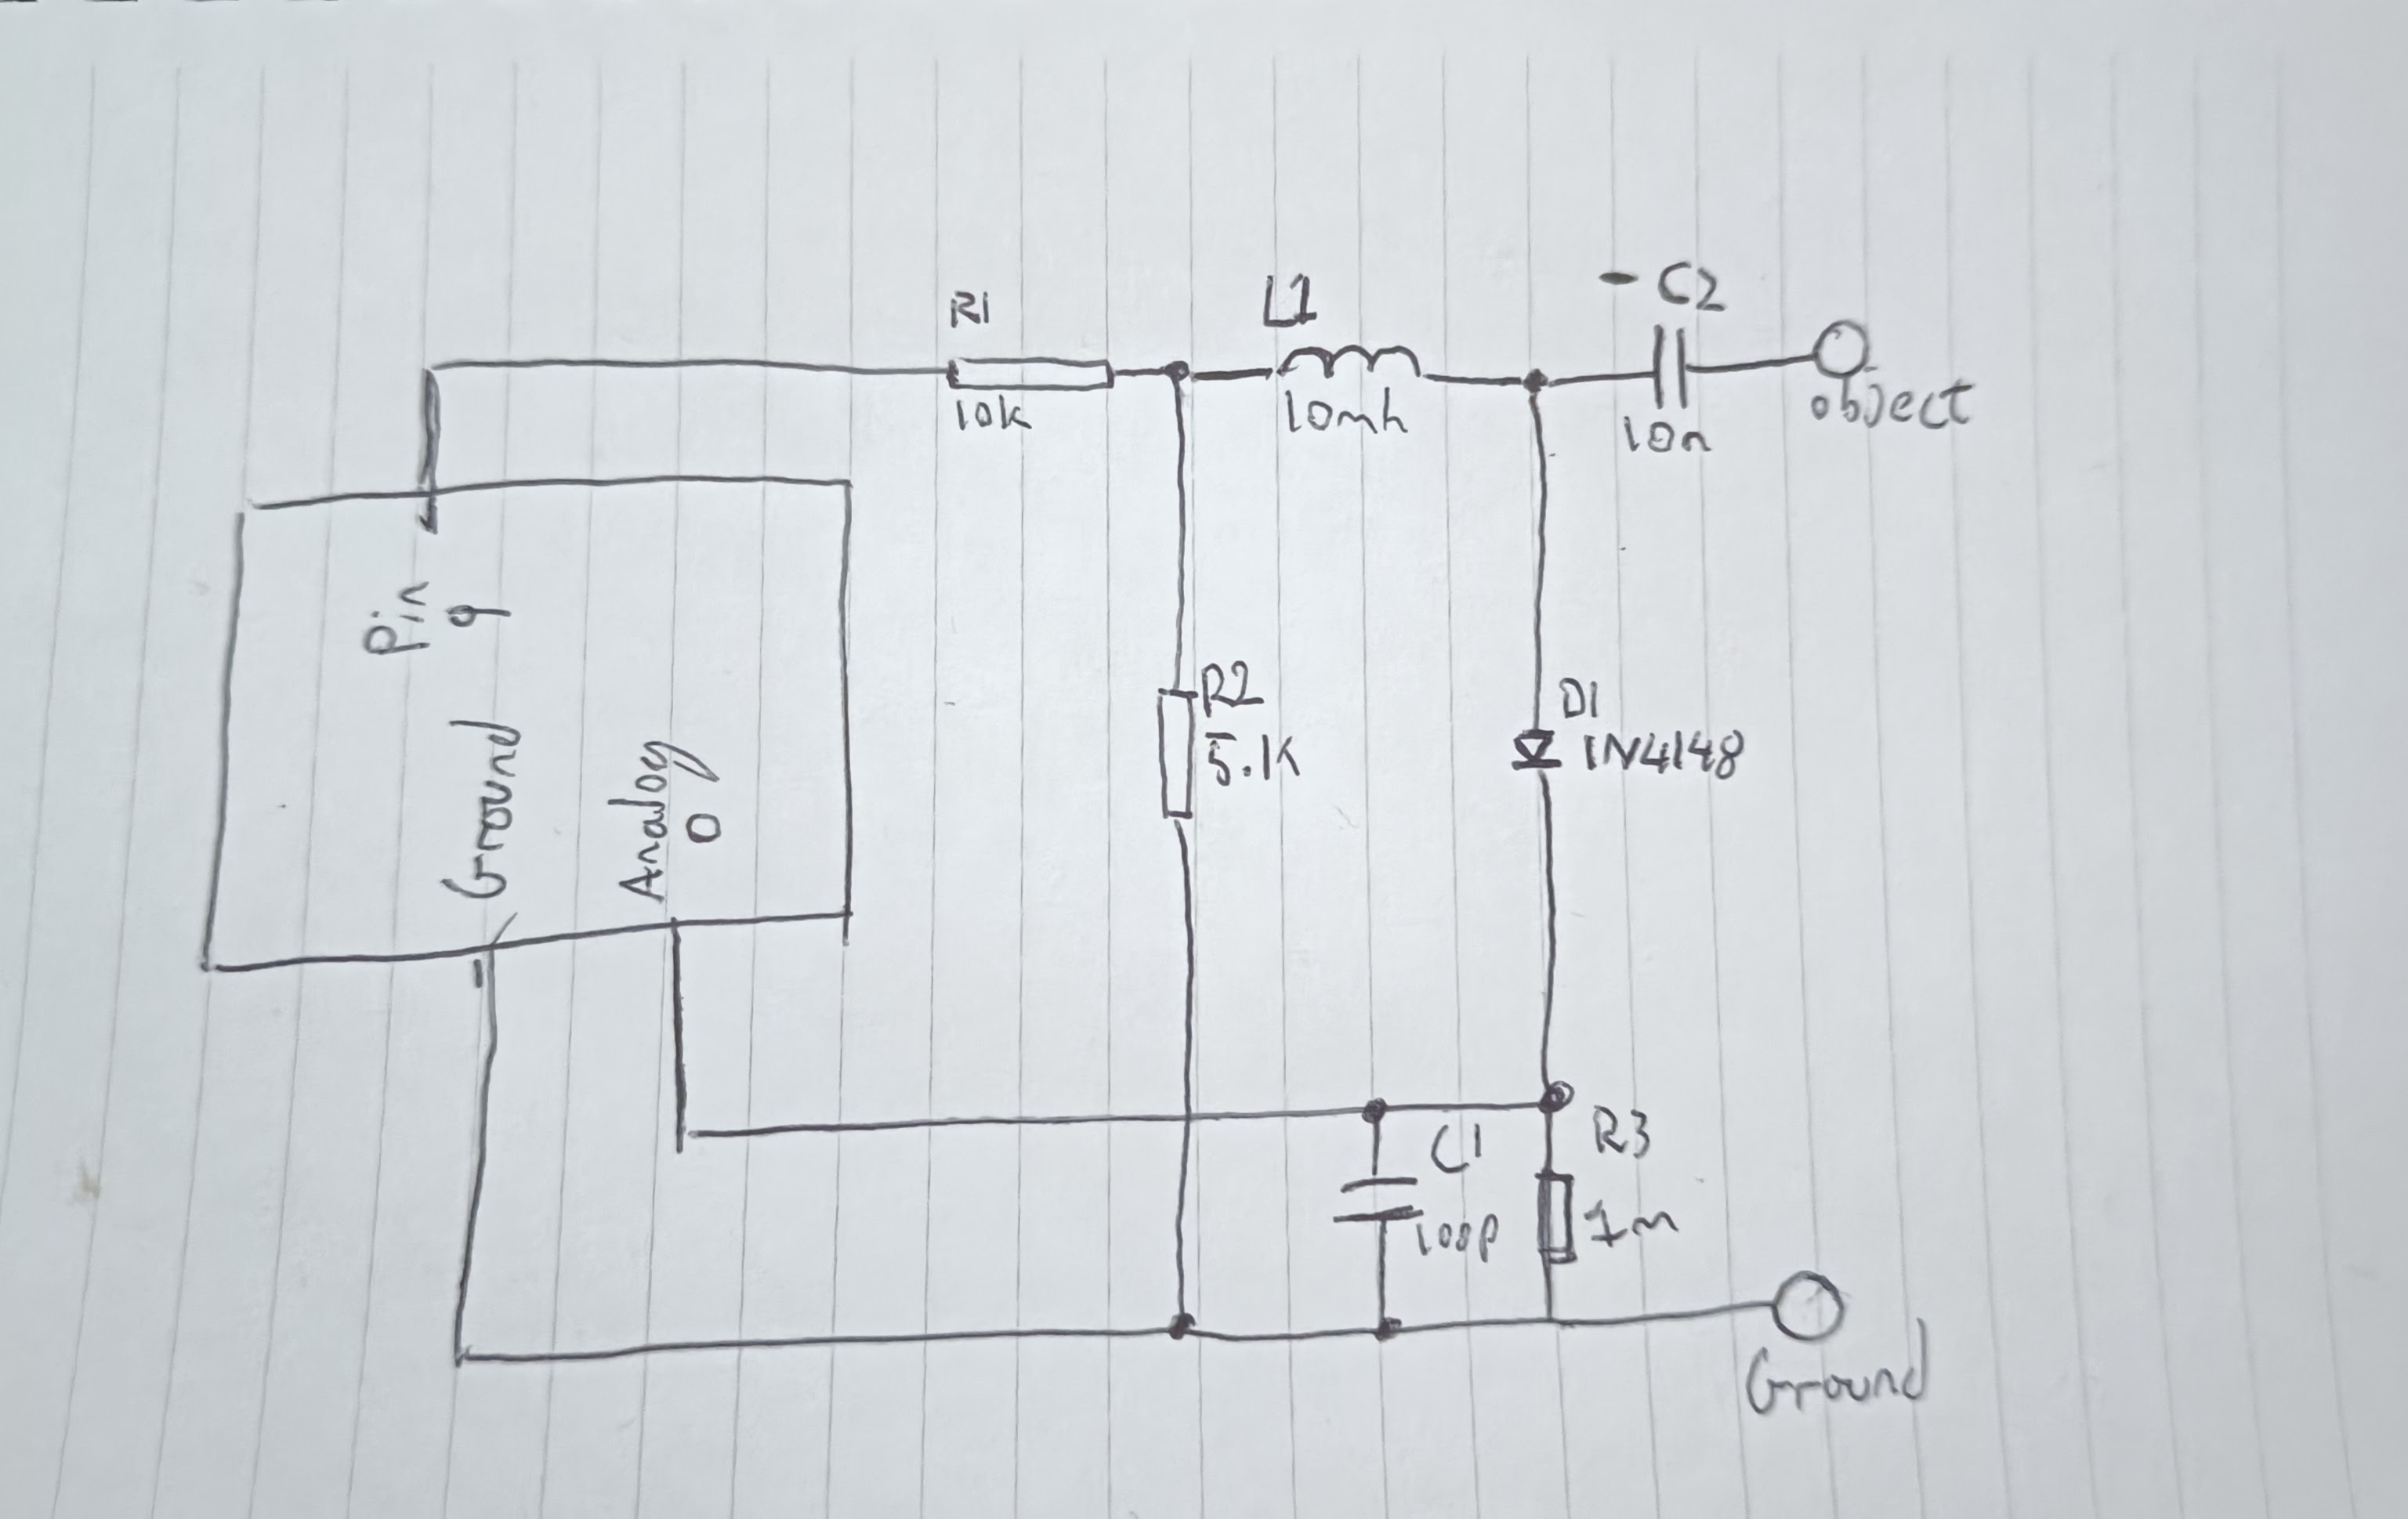 R1
10k
L1
10mh
- C2
10n
object
Pin
9
Ground
Analog
0
R2
5.1K
D1
1N4148
C1
100p
R3
1m
Ground